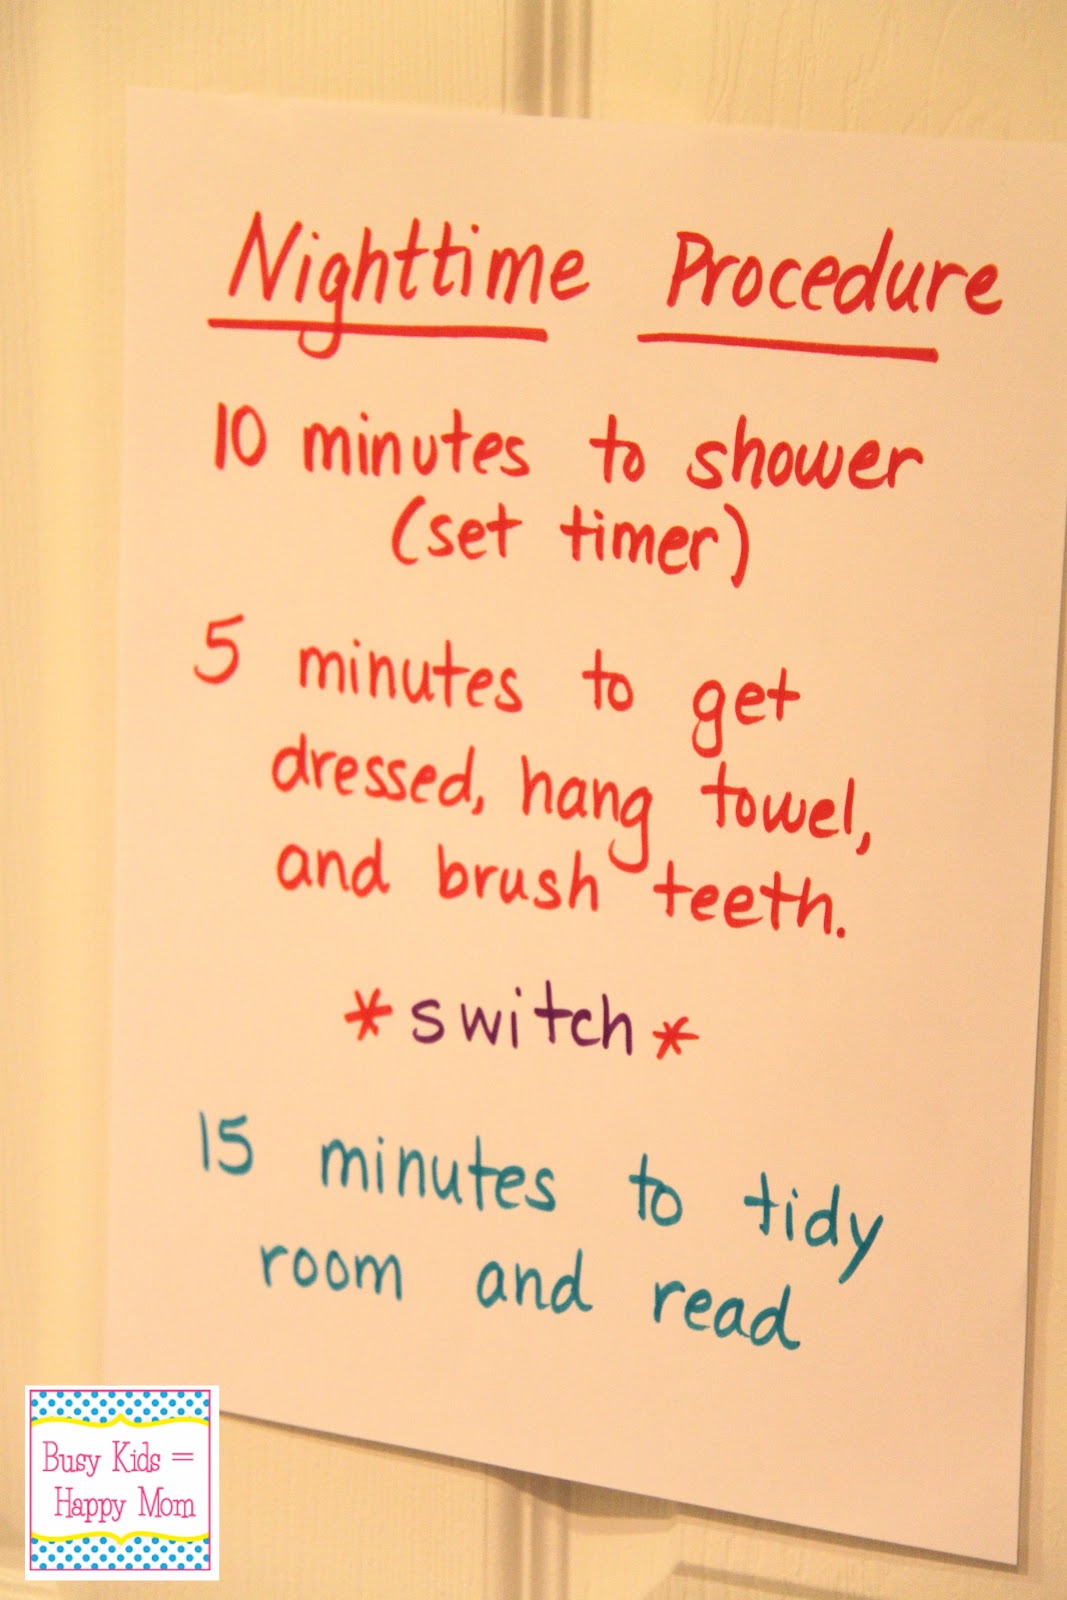 Nighttime Procedure
10 minutes to shower
(set timer)
5 minutes to get
dressed, hang towel,
and brush teeth.
*switch*
15 minutes to tidy
room and read
Busy Kids =
Happy Mom